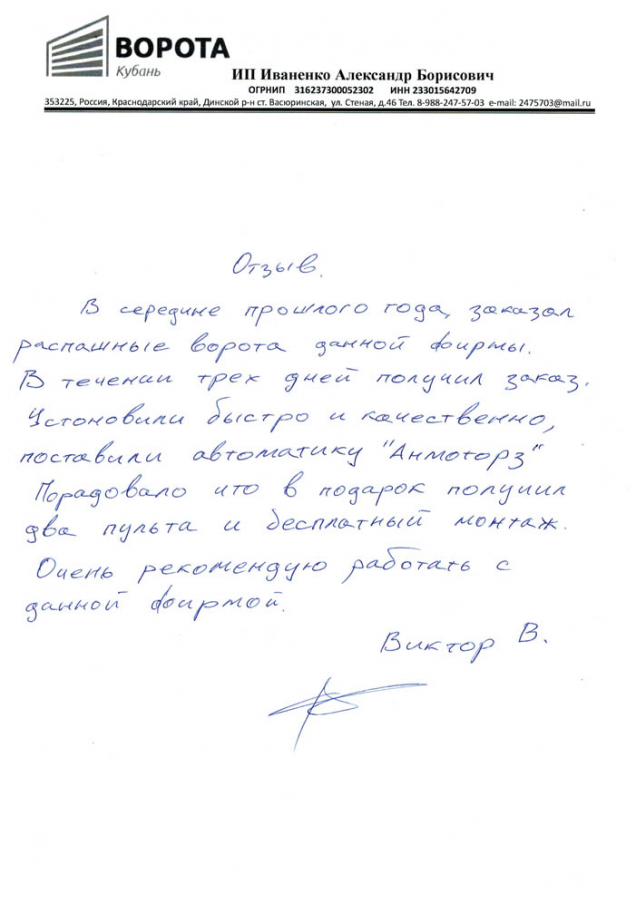 ВОРОТА
Кубань
ИП Иваненко Александр Борисович
ОГРНИП 316237300052302 ИНН 233015642709
353225, Россия, Краснодарский край, Динской р-н ст. Васюринская, ул. Степная, д.46 Тел. 8-988-247-57-03 e-mail: 2475703@mail.ru
Отзыв.
В середине прошлого года, заказал
распашные ворота данной фирмы.
В течении трех дней получил заказ.
Устоновили быстро и качественно,
поставили автоматику "Анмоторз"
Порадовало что в подарок получил
два пульта и бесплатный монтаж.
Очень рекомендую работать с
данной фирмой.
Виктор В.